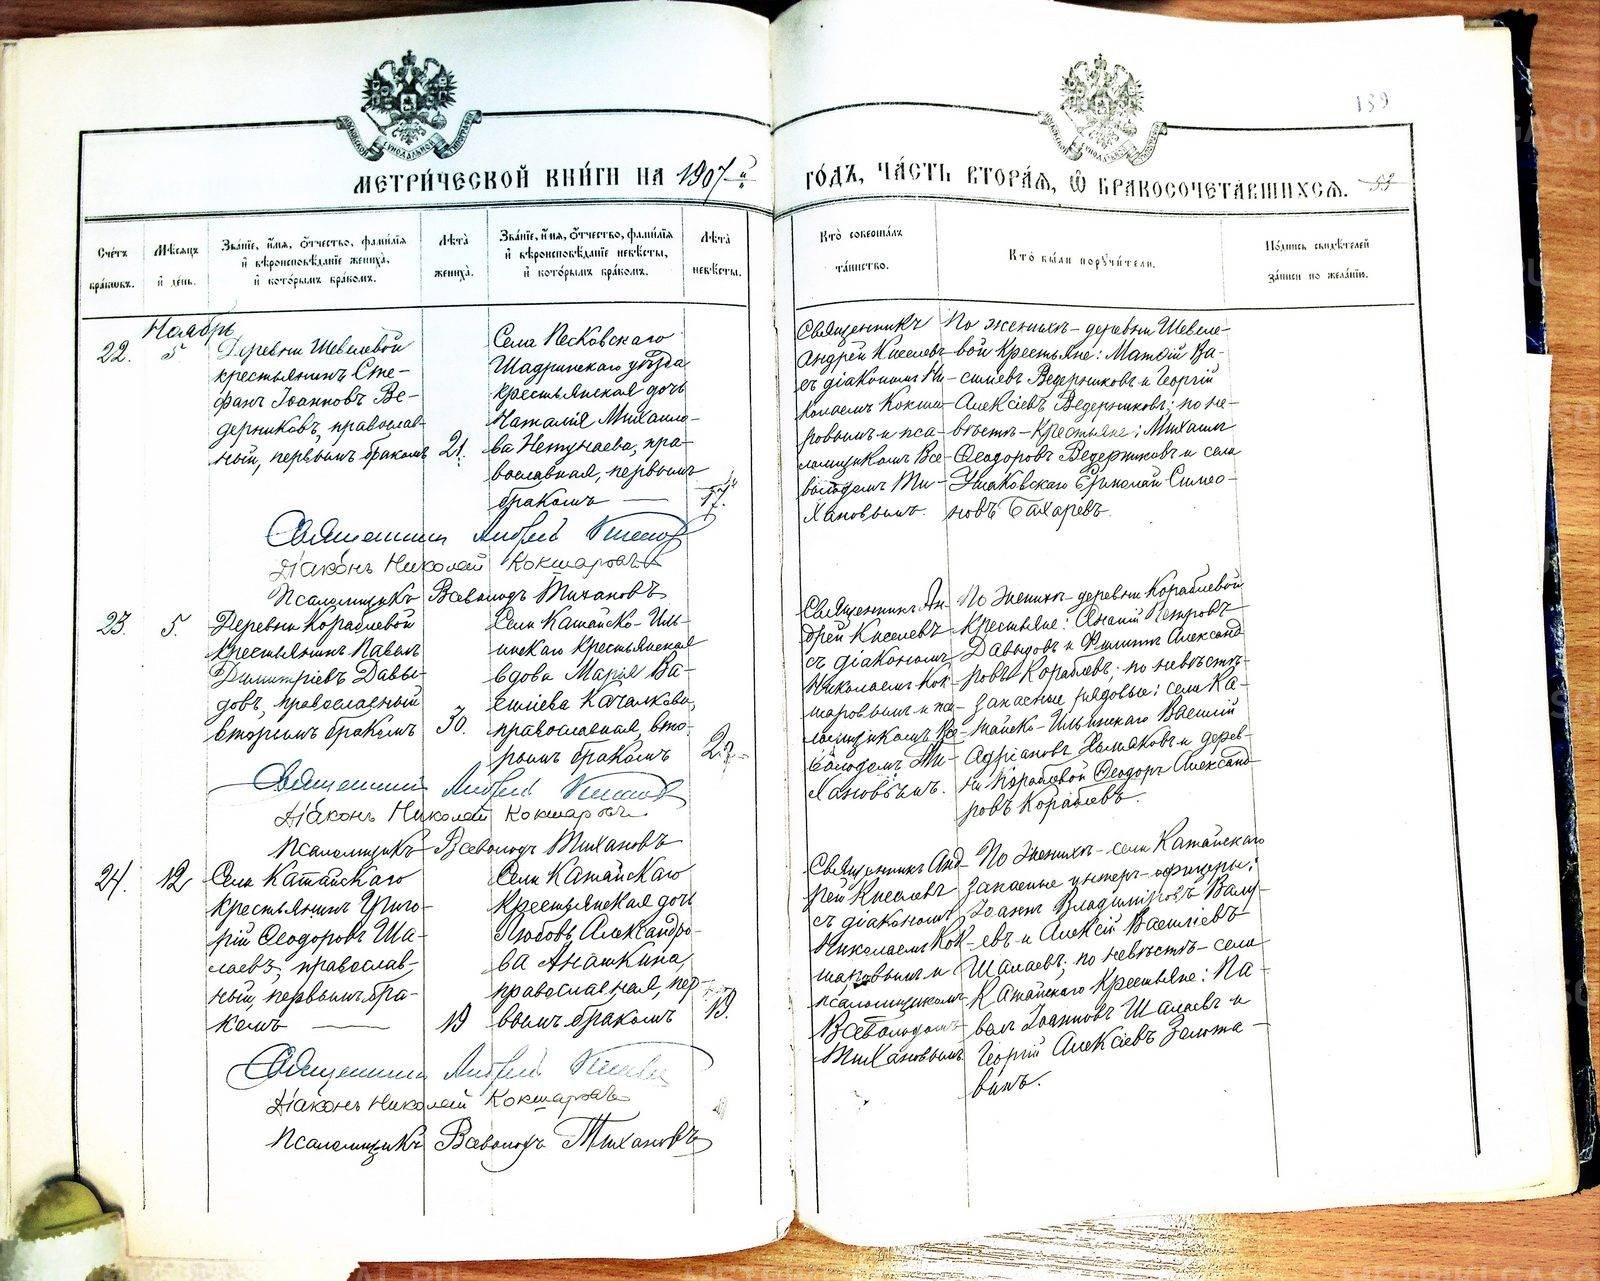 139
МЕТРИ́ЧЕСКОЙ КНИ́ГИ НА 1907й
ГО́ДЪ, ЧА́СТЬ ВТОРА́Я, Ѽ БРАКОСОЧЕТА́ВШИХСЯ.
Сче́тъ бра́ковъ.
Мѣ́сяцъ и҆ де́нь.
Зва́нїе, и҆́мя, ѻ҆́тчество, фами́лїя
и҆ вѣроисповѣ́данїе жениха̀,
и҆ кото́рымъ бра́комъ.
Лѣ́та жениха̀.
Зва́нїе, и҆́мя, ѻ҆́тчество, фами́лїя
и҆ вѣроисповѣ́данїе невѣ́сты,
и҆ кото́рымъ бра́комъ.
Лѣ́та невѣ́сты.
Кто̀ соверша́лъ та́инство.
Кто̀ бы́ли порꙋчи́тели.
По́дпись свидѣ́телей за́писи по жела́нїю.
Ноябрь
22.
5
Деревни Шевелевой
крестьянинъ Сте-
фанъ Іоанновъ Ве-
дерниковъ, православ-
ный, первымъ бракомъ
21.
Села Песковскаго
Шадринскаго уѣзда
крестьянская дочь
Наталія Михаило-
ва, пра-
вославная, первымъ
бракомъ —
17.
Священникъ
Андрей Киселевъ
съ діакономъ Ни-
колаемъ Кокша-
ровымъ и пса-
ломщикомъ Все-
володомъ Ти-
хановымъ.
По женихѣ – деревни Шевеле-
вой крестьяне: Матѳій Ва-
силіевъ Ведерниковъ и Георгій
Алексіевъ Ведерниковъ; по не-
вѣстѣ – крестьяне: Михаилъ
Ѳеодоровъ Ведерниковъ и села
Ушаковскаго Симео-
новъ Бахаревъ.
Священникъ Андрей Киселевъ
Діаконъ Николай Кокшаровъ
Псаломщикъ Всеволодъ Тихановъ
23.
5.
Деревни Кораблевой
крестьянинъ Павелъ
Димитріевъ Давы-
довъ, православный
вторымъ бракомъ
30.
Села Катайско-Иль-
инскаго крестьянская
вдова Марія Ва-
силіева Качалкова,
православная, вто-
рымъ бракомъ
Священникъ Ан-
дрей Киселевъ
съ діакономъ
Николаемъ Кок-
шаровымъ и пса-
ломщикомъ Все-
володомъ Ти-
хановымъ.
По женихѣ – деревни Кораблевой
крестьяне: Петровъ
Давыдовъ и Филиппъ Александ-
ровъ Кораблевъ; по невѣстѣ –
запасные рядовые: села Ка-
тайско-Ильинскаго Василій
Адріановъ и дерев-
ни Кораблевой Ѳеодоръ Александ-
ровъ Кораблевъ.
Священникъ Андрей Киселевъ
Діаконъ Николай Кокшаровъ
Псаломщикъ Всеволодъ Тихановъ
24.
12
Села Катайскаго
крестьянинъ Григо-
рій Ѳеодоровъ Ша-
лаевъ, православ-
ный, первымъ бра-
комъ —
19
Села Катайскаго
крестьянская дочь
Любовь Александро-
ва Анашкина,
православная, пер-
вымъ бракомъ
19.
Священникъ Анд-
рей Киселевъ
съ діакономъ
Николаемъ Кок-
шаровымъ и
псаломщикомъ
Всеволодомъ
Тихановымъ
По женихѣ – села Катайскаго
запасные унтеръ-офицеры:
Іоаннъ Владиміровъ Валу-
евъ и Алексій Василіевъ
Шалаевъ; по невѣстѣ – села
Катайскаго крестьяне: Па-
велъ Іоанновъ Шалаевъ и
Георгій Алексіевъ Золота-
винъ.
Священникъ Андрей Киселевъ
Діаконъ Николай Кокшаровъ
Псаломщикъ Всеволодъ Тихановъ